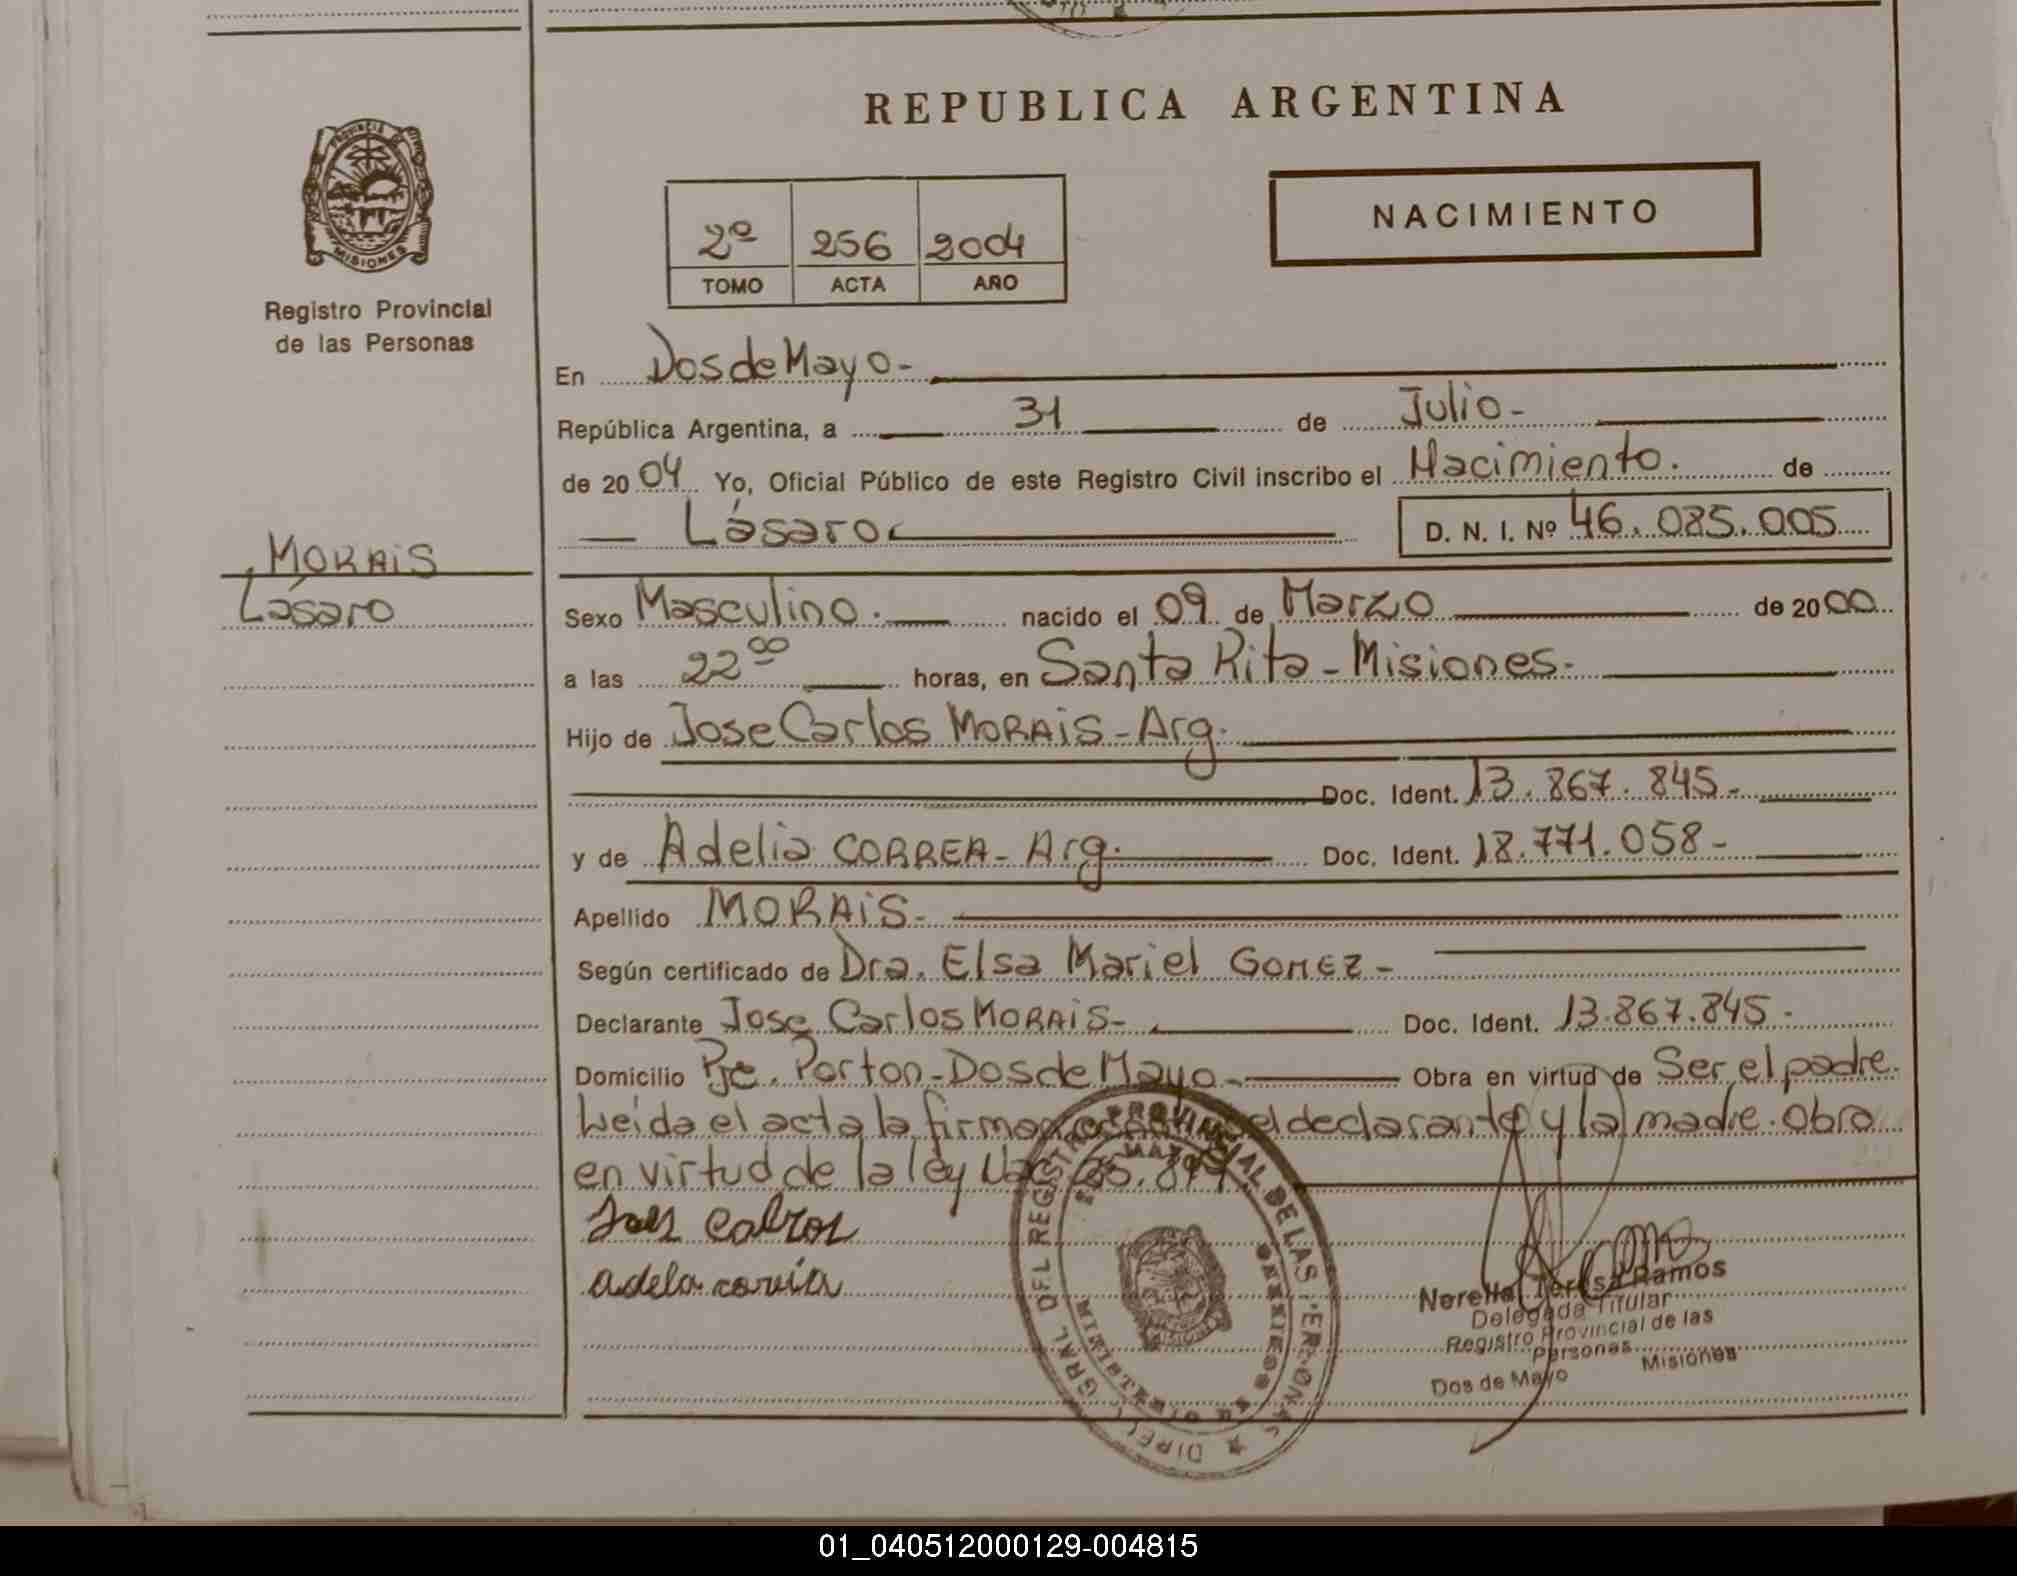 REPUBLICA ARGENTINA
PROVINCIA DE
MISIONES
Registro Provincial
de las Personas
NACIMIENTO
2º 256 2004
TOMO ACTA AÑO
En Dos de Mayo-
República Argentina, a 31 de Julio-
de 2004 Yo, Oficial Público de este Registro Civil inscribo el Nacimiento. de
Lásaro D. N. I. Nº 46.085.005
MORAIS
Lásaro
Sexo Masculino. nacido el 09 de Marzo de 2000
a las 22 00 horas, en Santa Rita - Misiones.
Hijo de Jose Carlos MORAIS - Arg.
Doc. Ident. 13.867.845-
y de Adelia CORREA - Arg. Doc. Ident. 18.771.058-
Apellido MORAIS-
Según certificado de Dra. Elsa Mariel GOMEZ-
Declarante Jose Carlos MORAIS- Doc. Ident. 13.867.845-
Domicilio Pje. Porton-Dos de Mayo- Obra en virtud de Ser el padre.
Leída el acta la firman el declarante y la madre. Obra
en virtud de la ley Nac.
adela
Norella Teresa Ramos
Delegada Titular
Registro Provincial de las
Personas
Dos de Mayo Misiones
REGISTRO PROVINCIAL DE LAS PERSONAS
01_040512000129-004815